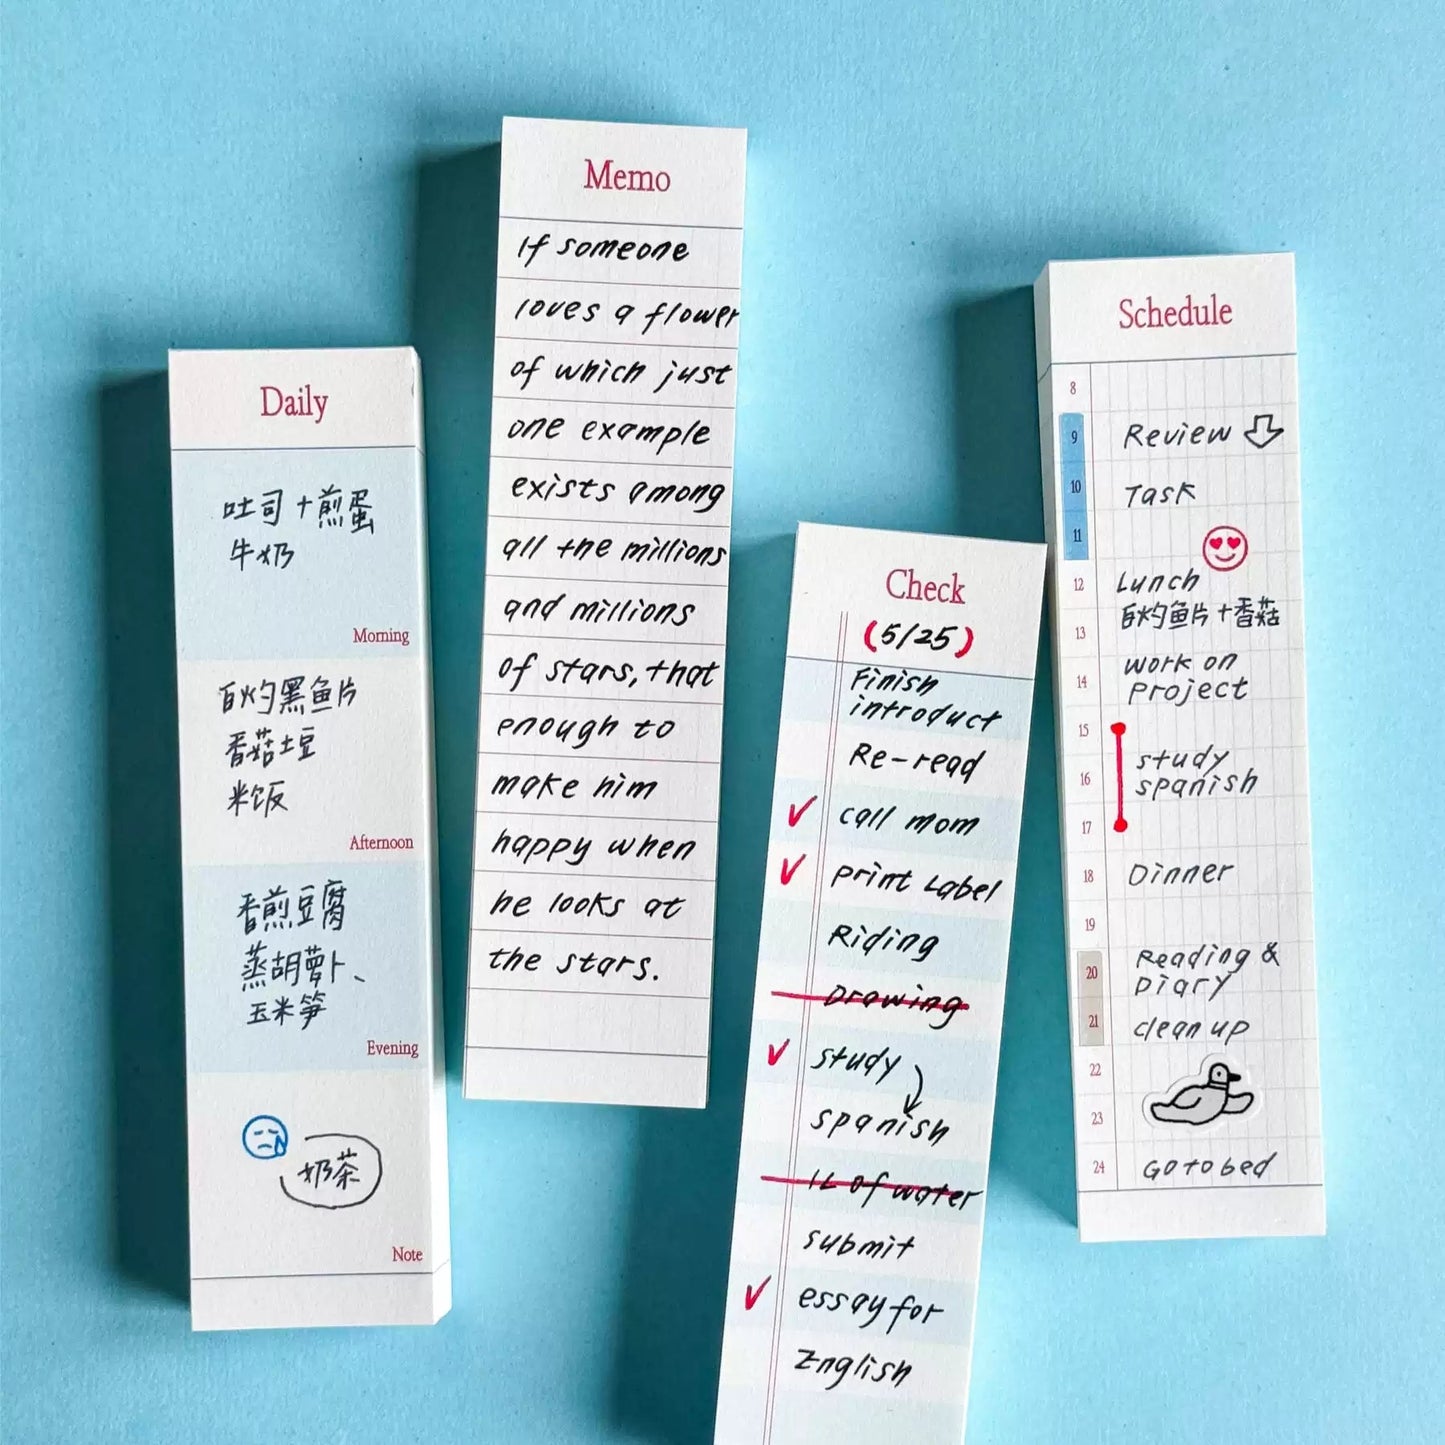 Daily
吐司+煎蛋
牛奶
Morning
白灼黑鱼片
香菇土豆
米饭
Afternoon
香煎豆腐
蒸胡萝卜、
玉米笋
Evening
奶茶
Note
Memo
If someone
loves a flower
of which just
one example
exists among
all the millions
and millions
of stars, that
enough to
make him
happy when
he looks at
the stars.
Check
(5/25)
Finish
introduct
Re-read
call mom
print Label
Riding
Drawing
study
spanish
1L of water
submit
essay for
English
Schedule
8
9 Review
10 Task
11
12 Lunch
13 白灼鱼片+香菇
14 work on
project
15
16 study
spanish
17
18 Dinner
19
20 Reading &
Diary
21 clean up
22
23
24 Go to bed